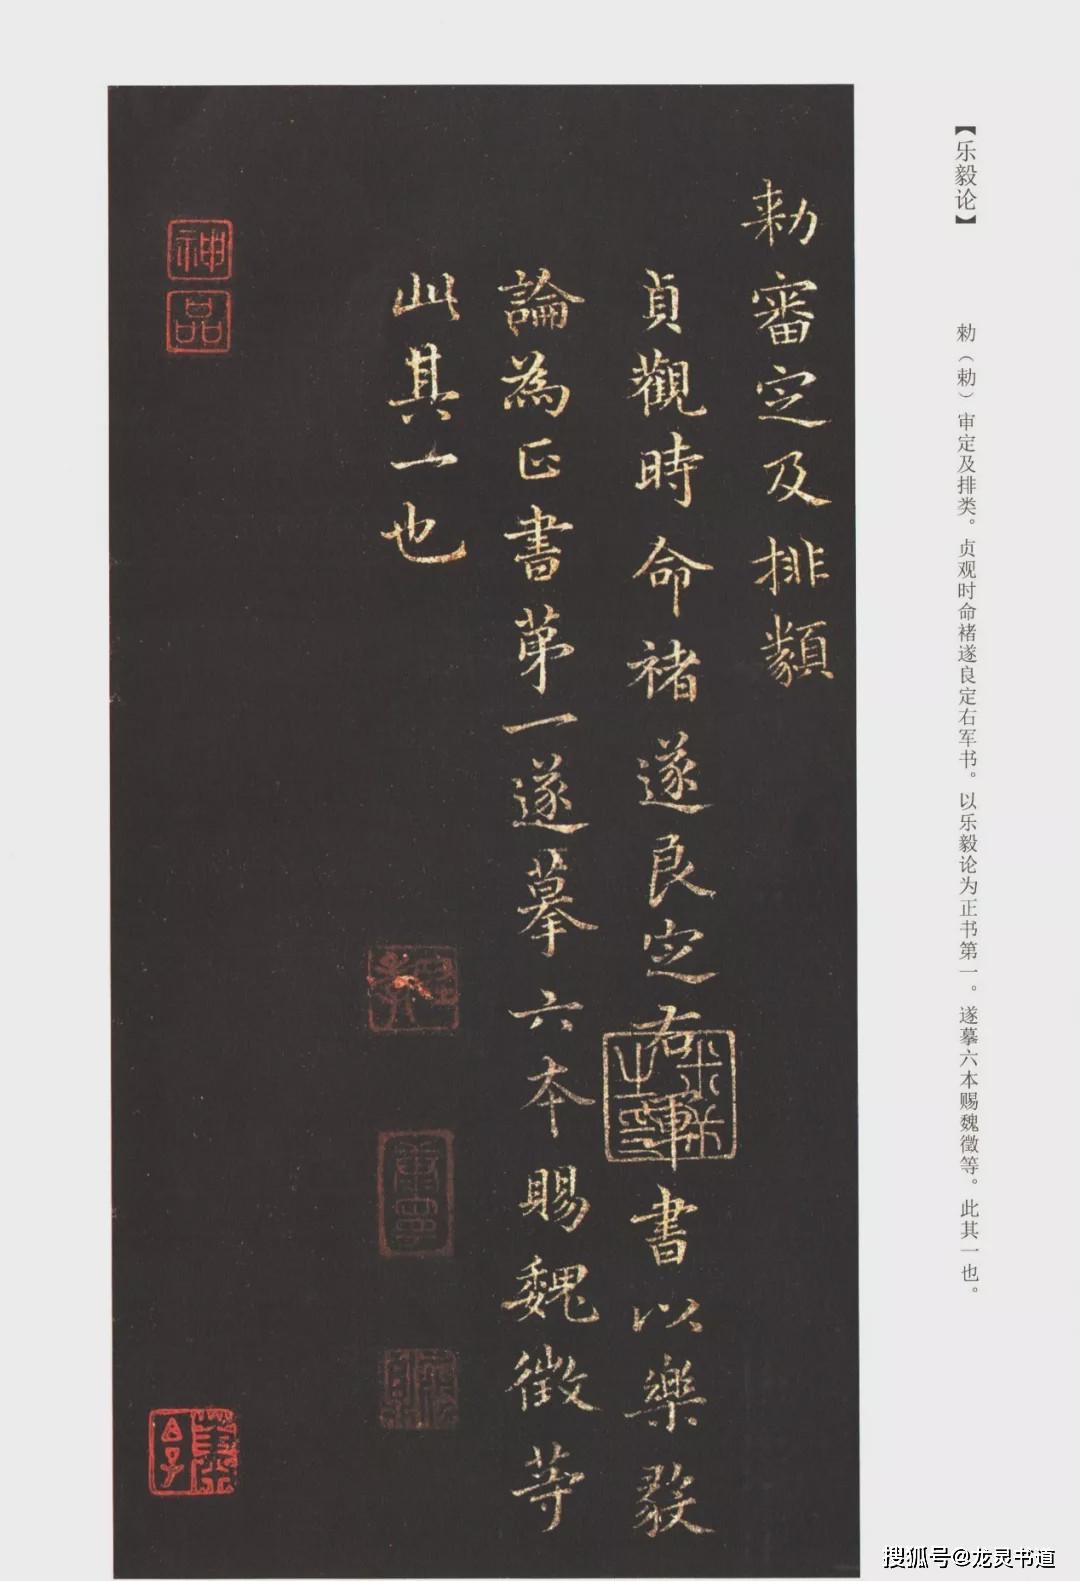 【乐毅论】
勑（勅）审定及排类。贞观时命褚遂良定右军书。以乐毅论为正书第一。遂摹六本赐魏徵等。此其一也。
勑審定及排類
貞觀時命褚遂良定右軍書以樂毅
論為正書第一遂摹六本賜魏徵等
此其一也
神
品
搜狐号@龙灵书道